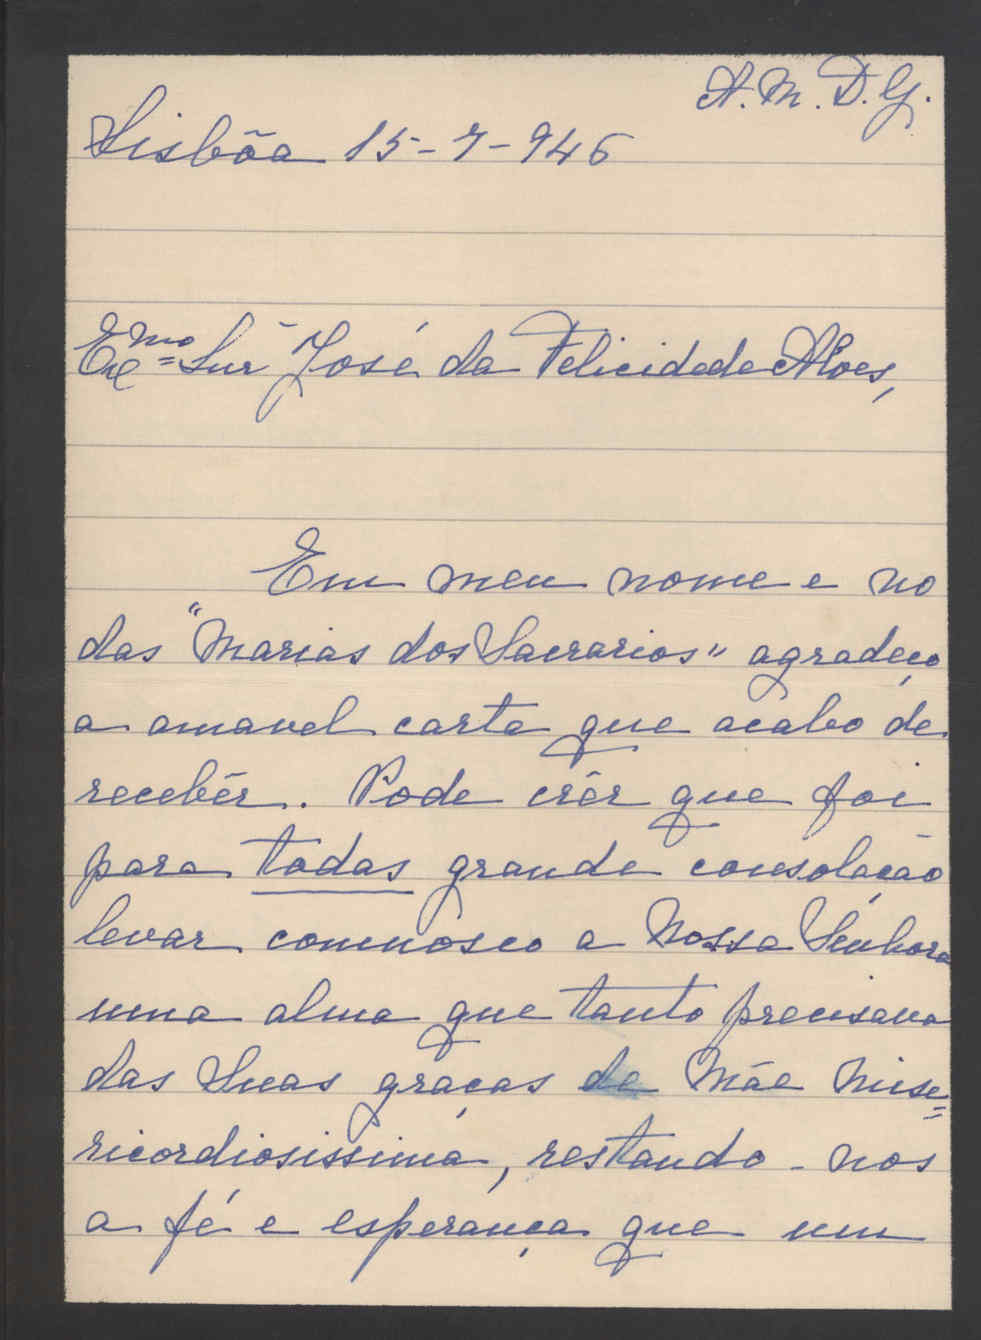 A. M. D. G.
Lisbôa 15-7-946
Exmo Snr José da Felicidade Alves,
Em meu nome e no
das "Marias dos Sacrarios" agradeço
a amavel carta que acabo de
recebêr. Pode crêr que foi
para todas grande consolação
levar comnosco a Nossa Senhora
uma alma que tanto precisava
das Suas graças de Mãe Mise=
ricordiosissima, restando-nos
a fé e esperança que um